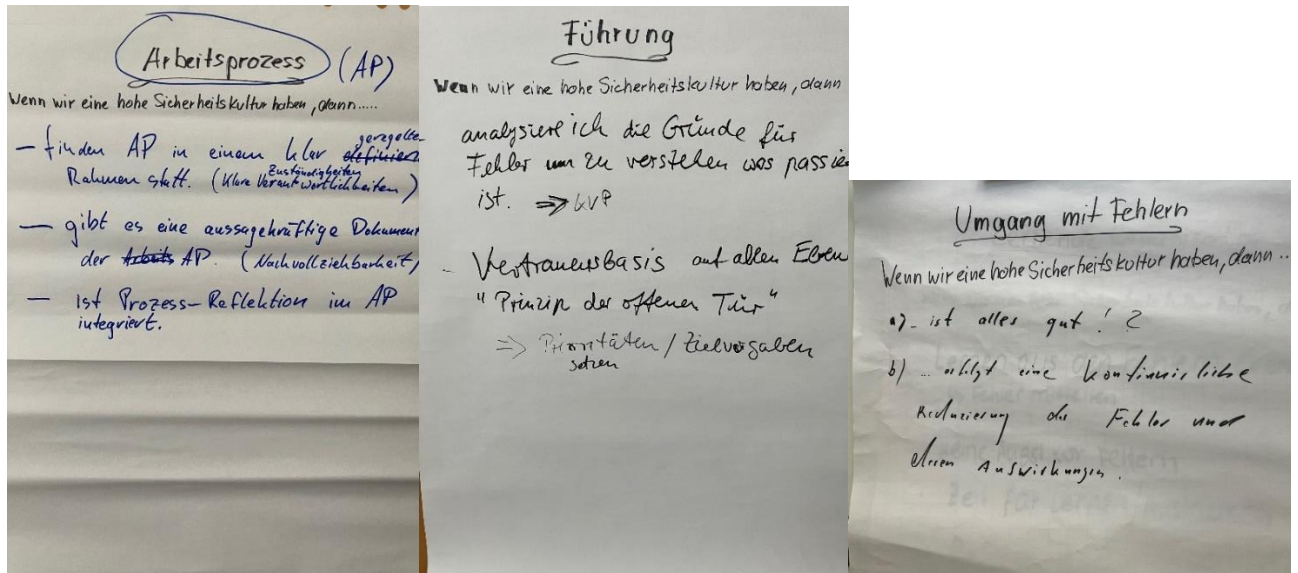 Arbeitsprozess (AP)
Wenn wir eine hohe Sicherheitskultur haben, dann.....
geregelte
– finden AP in einem klar definiert
Zuständigkeiten
Rahmen statt. (klare Verantwortlichkeiten)
– gibt es eine aussagekräftige Dokument
der Arbeits AP. (Nachvollziehbarkeit)
– ist Prozess-Reflektion im AP
integriert.
Führung
Wenn wir eine hohe Sicherheitskultur haben, dann
analysiere ich die Gründe für
Fehler um zu verstehen was passie
ist. ⇒ KVP
– Vertrauensbasis auf allen Eben
"Prinzip der offenen Tür"
⇒ Prioritäten / Zielvorgaben
setzen
Umgang mit Fehlern
Wenn wir eine hohe Sicherheitskultur haben, dann...
a) .. ist alles gut! ?
b) ... erfolgt eine kontinuierliche
Reduzierung der Fehler und
deren Auswirkungen.